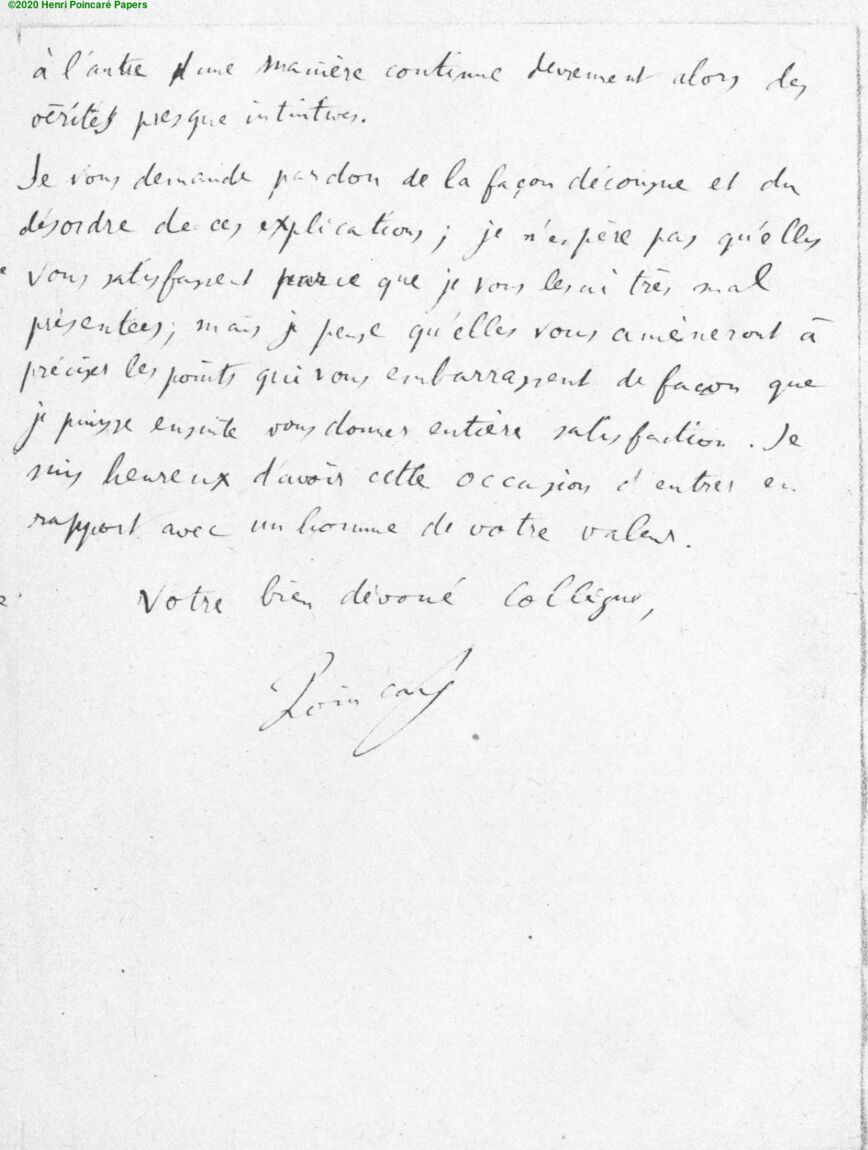 ©2020 Henri Poincaré Papers
à l'autre d'une manière continue deviennent alors des
vérités presque intuitives.
Je vous demande pardon de la façon décousue et du
désordre de ces explications; je n'espère pas qu'elles
vous satisfassent parce que je vous les ai très mal
présentées; mais je pense qu'elles vous amèneront à
préciser les points qui vous embarrassent de façon que
je puisse ensuite vous donner entière satisfaction. Je
suis heureux d'avoir cette occasion d'entrer en
rapport avec un homme de votre valeur.
Votre bien dévoué Collègue,
Poincaré